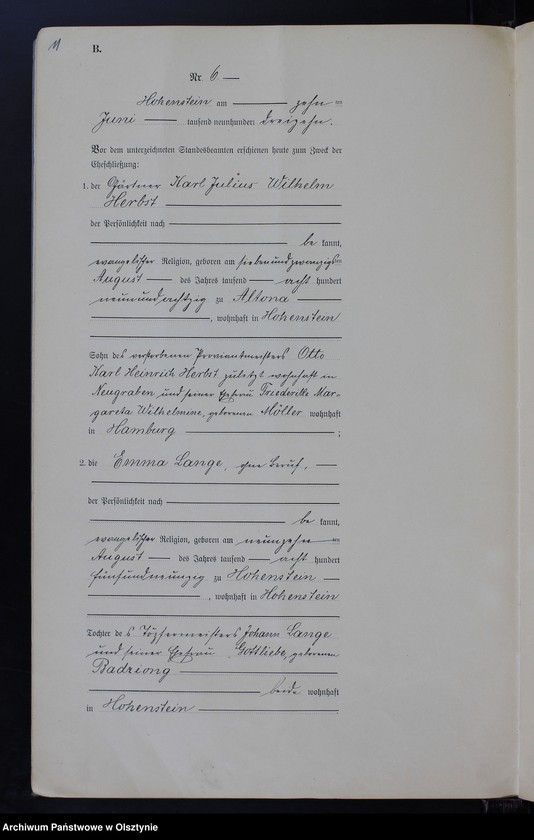 11
B.
Nr. 6.
Hohenstein am zehn ten
Juni tausend neunhundert dreizehn.
Vor dem unterzeichneten Standesbeamten erschienen heute zum Zweck der
Eheschließung:
1. der Gärtner Karl Julius Wilhelm
Herbst
der Persönlichkeit nach
be kannt,
evangelischer Religion, geboren am siebenundzwanzigsten
August des Jahres tausend acht hundert
neunundachtzig zu Altona
, wohnhaft in Hohenstein
Sohn des verstorbenen Proviantmeisters Otto
Karl Heinrich Herbst zuletzt wohnhaft in
Neugraben und seiner Ehefrau Friederike Mar-
gareta Wilhelmine, geborenen Möller wohnhaft
in Hamburg ;
2. die Emma Lange, ohne Beruf,
der Persönlichkeit nach
be kannt,
evangelischer Religion, geboren am neunzehn ten
August des Jahres tausend acht hundert
fünfundneunzig zu Hohenstein
, wohnhaft in Hohenstein
Tochter des Töpfermeisters Johann Lange
und seiner Ehefrau Gottliebe, geborenen
Badziong
beide wohnhaft
in Hohenstein
Archiwum Państwowe w Olsztynie